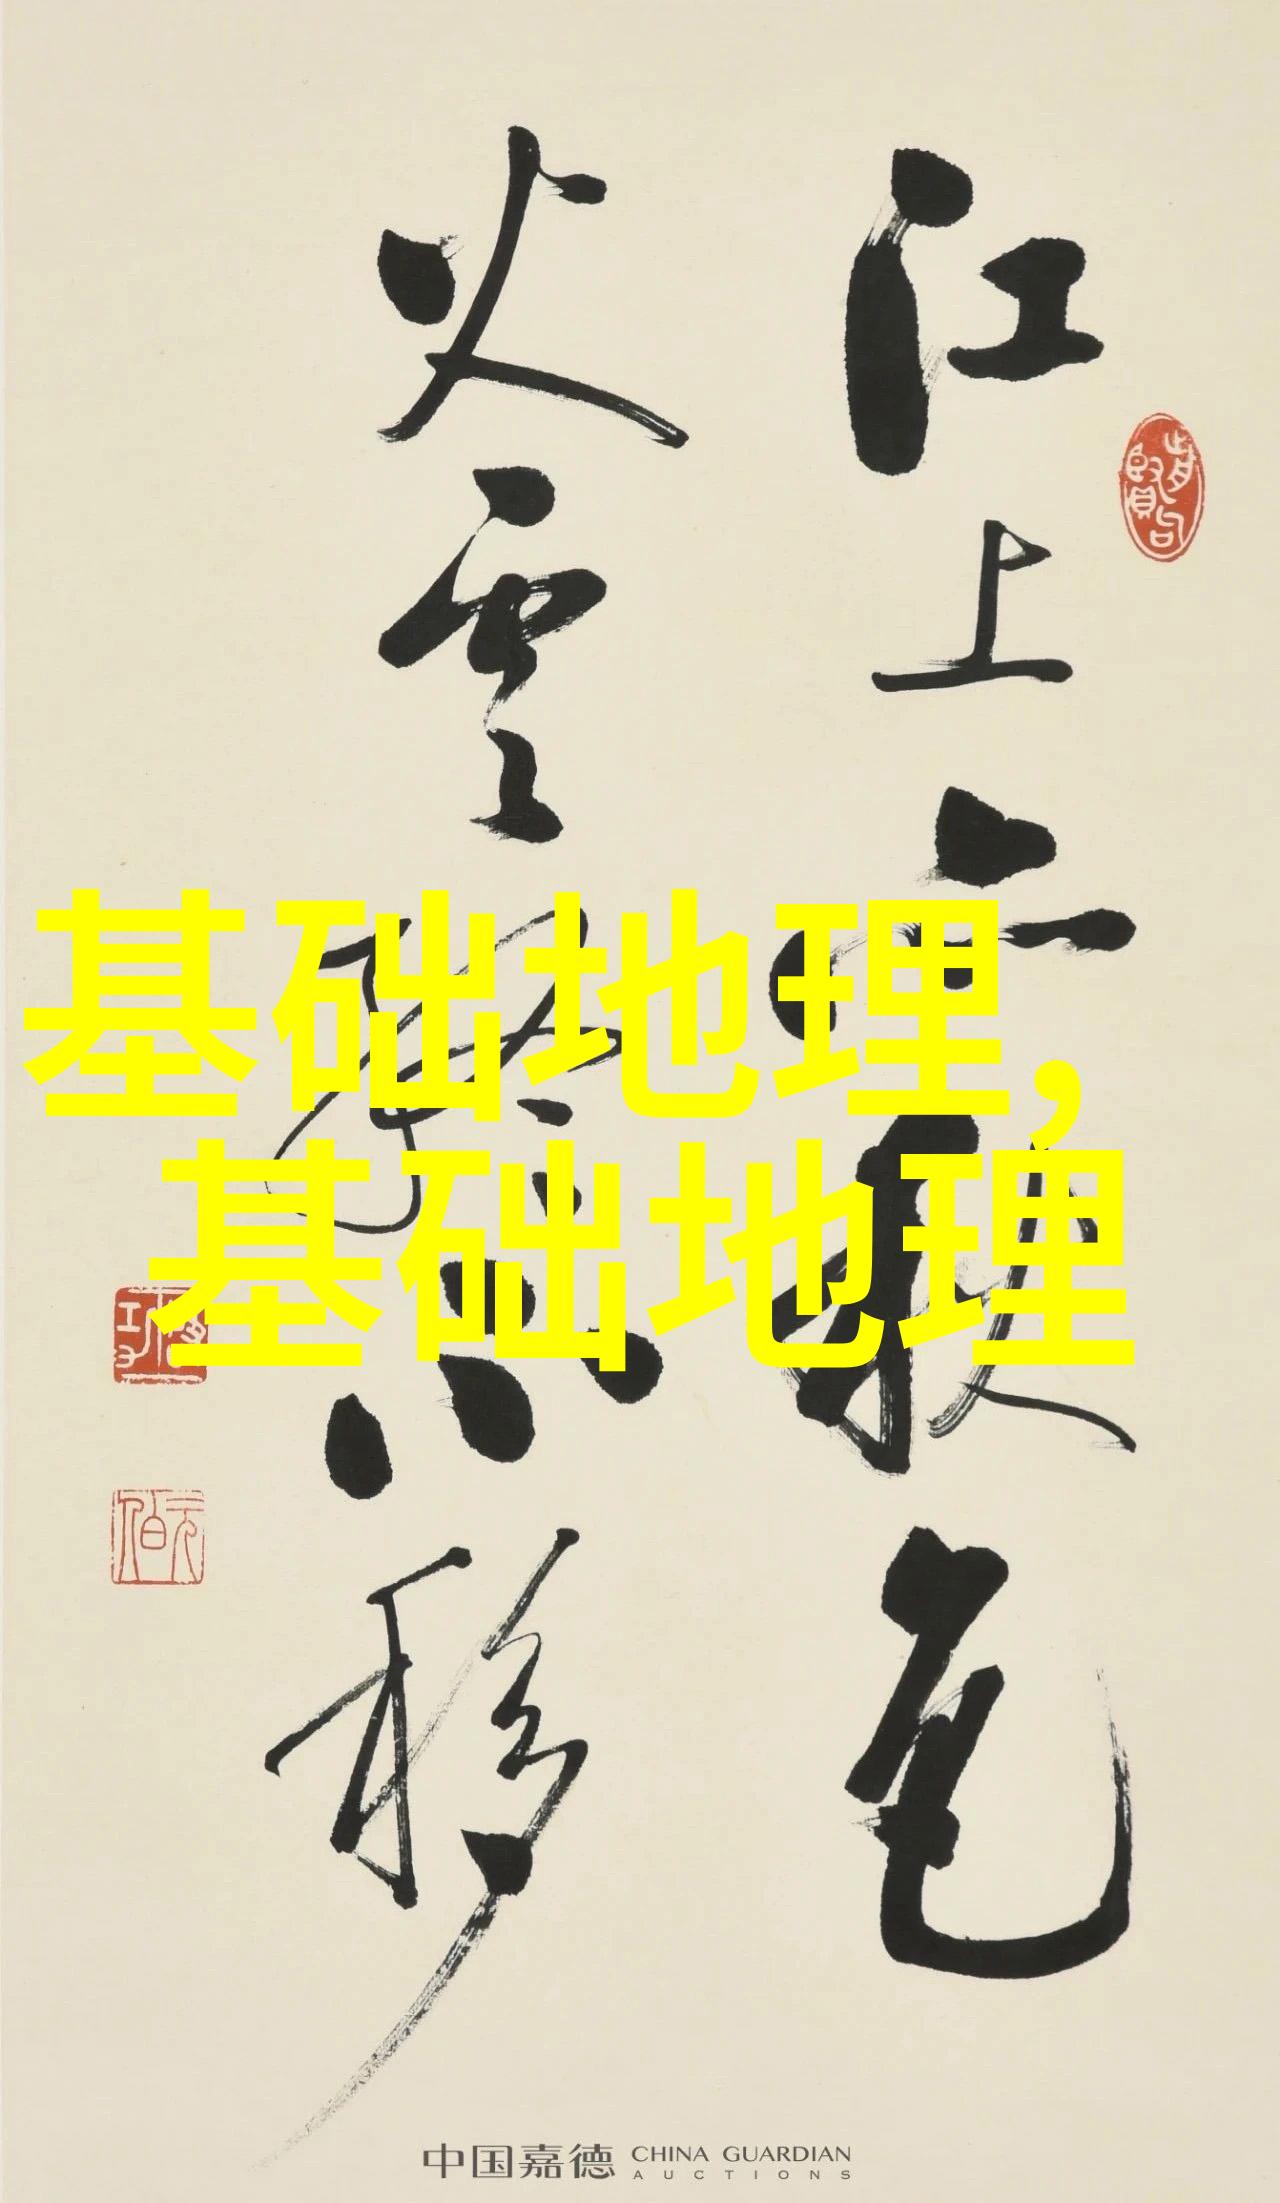 江上亦秋色
火雲終不移
基础地理，
基础地理
中国嘉德 CHINA GUARDIAN
AUCTIONS